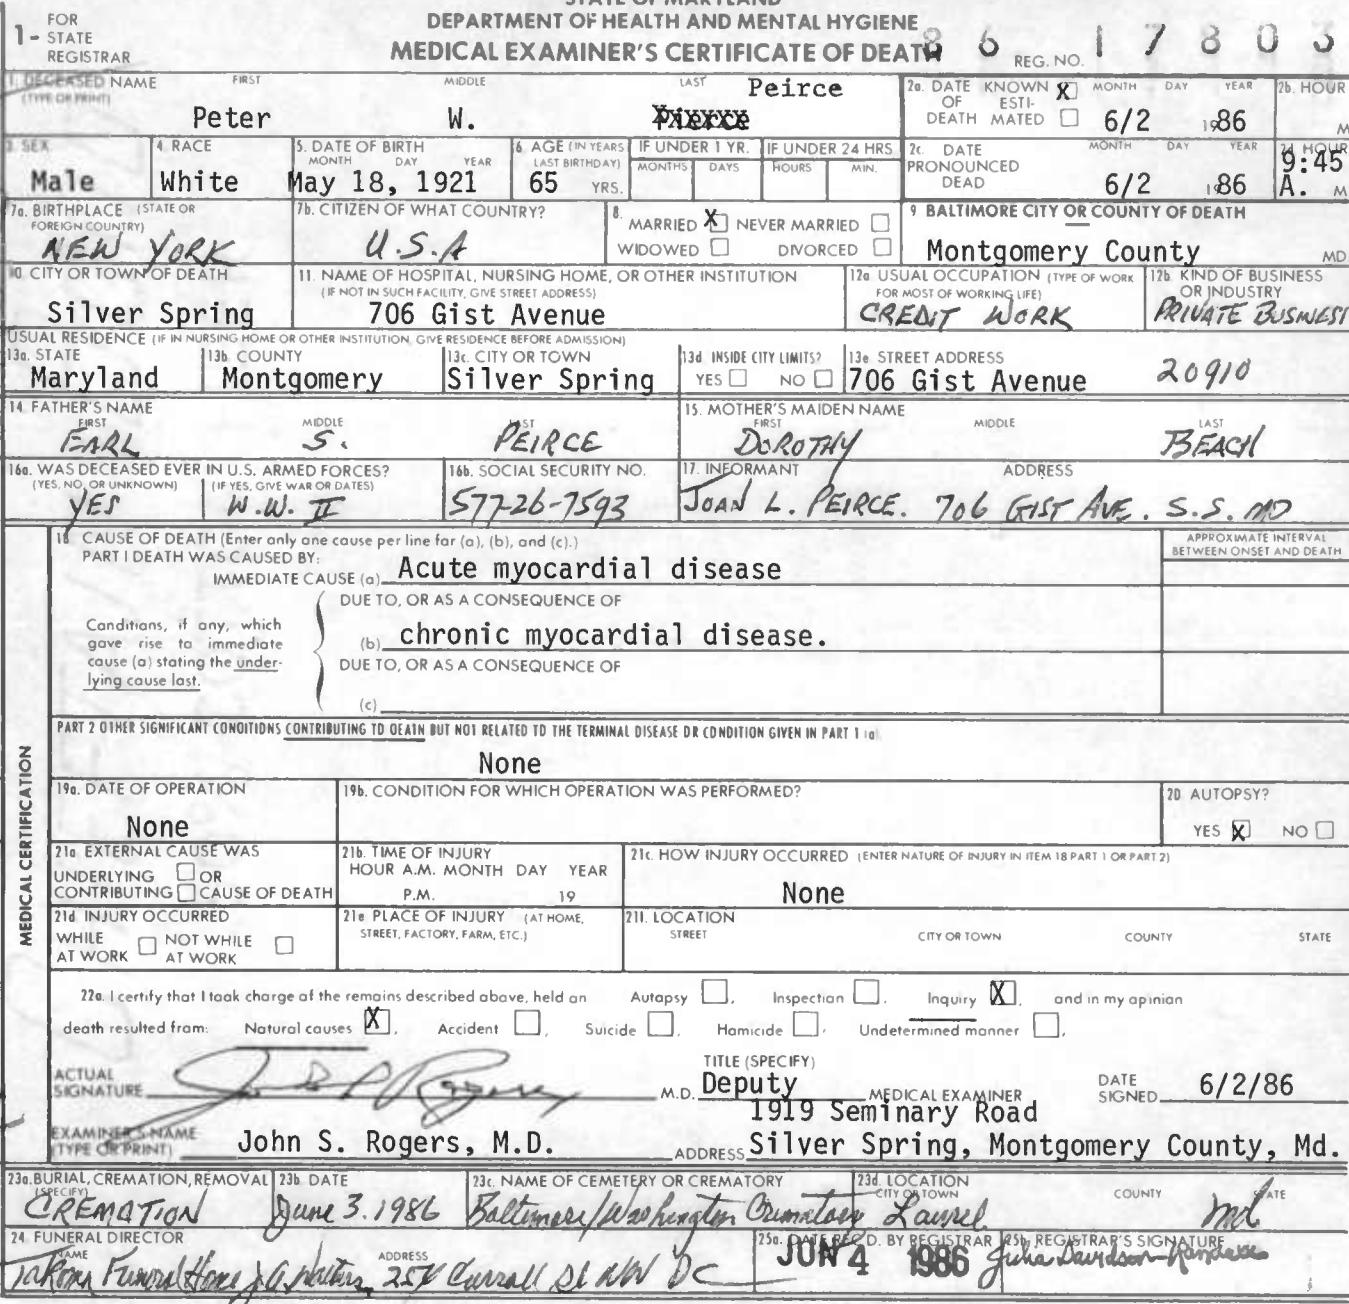 STATE OF MARYLAND
DEPARTMENT OF HEALTH AND MENTAL HYGIENE
MEDICAL EXAMINER'S CERTIFICATE OF DEATH
1- FOR STATE REGISTRAR
86 REG. NO. 17803
1. DECEASED NAME (TYPE OR PRINT) FIRST MIDDLE LAST Peirce
Peter W. Pierce
2a. DATE OF DEATH KNOWN X ESTIMATED ☐ MONTH DAY YEAR 6/2 1986
2b. HOUR M
3. SEX Male
4. RACE White
5. DATE OF BIRTH MONTH DAY YEAR May 18, 1921
6. AGE (IN YEARS LAST BIRTHDAY) 65 YRS.
IF UNDER 1 YR. MONTHS DAYS
IF UNDER 24 HRS HOURS MIN.
2c. DATE PRONOUNCED DEAD MONTH DAY YEAR 6/2 1986
2d HOUR 9:45 A. M
7a. BIRTHPLACE (STATE OR FOREIGN COUNTRY) NEW YORK
7b. CITIZEN OF WHAT COUNTRY? U.S.A
8. MARRIED X NEVER MARRIED ☐
WIDOWED ☐ DIVORCED ☐
9 BALTIMORE CITY OR COUNTY OF DEATH Montgomery County MD
10. CITY OR TOWN OF DEATH Silver Spring
11. NAME OF HOSPITAL, NURSING HOME, OR OTHER INSTITUTION
(IF NOT IN SUCH FACILITY, GIVE STREET ADDRESS)
706 Gist Avenue
12a. USUAL OCCUPATION (TYPE OF WORK FOR MOST OF WORKING LIFE) CREDIT WORK
12b. KIND OF BUSINESS OR INDUSTRY PRIVATE BUSINESS
USUAL RESIDENCE (IF IN NURSING HOME OR OTHER INSTITUTION, GIVE RESIDENCE BEFORE ADMISSION)
13a. STATE Maryland
13b COUNTY Montgomery
13c. CITY OR TOWN Silver Spring
13d INSIDE CITY LIMITS? YES ☐ NO ☐
13e STREET ADDRESS 706 Gist Avenue 20910
14. FATHER'S NAME FIRST MIDDLE LAST
EARL S. PEIRCE
15. MOTHER'S MAIDEN NAME FIRST MIDDLE LAST
DOROTHY BEACH
16a. WAS DECEASED EVER IN U.S. ARMED FORCES?
(YES, NO, OR UNKNOWN) (IF YES, GIVE WAR OR DATES)
YES W.W. II
16b. SOCIAL SECURITY NO. 577-26-7593
17. INFORMANT ADDRESS
JOAN L. PEIRCE. 706 GIST AVE. S.S. MD
MEDICAL CERTIFICATION
18 CAUSE OF DEATH (Enter only one cause per line for (a), (b), and (c).)
PART I DEATH WAS CAUSED BY:
IMMEDIATE CAUSE (a) Acute myocardial disease
APPROXIMATE INTERVAL BETWEEN ONSET AND DEATH
DUE TO, OR AS A CONSEQUENCE OF
Conditions, if any, which gave rise to immediate cause (a) stating the underlying cause last.
(b) chronic myocardial disease.
DUE TO, OR AS A CONSEQUENCE OF
(c)
PART 2 OTHER SIGNIFICANT CONDITIONS CONTRIBUTING TO DEATH BUT NOT RELATED TO THE TERMINAL DISEASE OR CONDITION GIVEN IN PART 1 (a)
None
19a. DATE OF OPERATION None
19b. CONDITION FOR WHICH OPERATION WAS PERFORMED?
20 AUTOPSY? YES X NO ☐
21a EXTERNAL CAUSE WAS
UNDERLYING ☐ OR
CONTRIBUTING ☐ CAUSE OF DEATH
21b. TIME OF INJURY
HOUR A.M. MONTH DAY YEAR
P.M. 19
21c. HOW INJURY OCCURRED (ENTER NATURE OF INJURY IN ITEM 18 PART 1 OR PART 2)
None
21d INJURY OCCURRED
WHILE AT WORK ☐ NOT WHILE AT WORK ☐
21e PLACE OF INJURY (AT HOME, STREET, FACTORY, FARM, ETC.)
21f. LOCATION STREET CITY OR TOWN COUNTY STATE
22a. I certify that I took charge of the remains described above, held an Autopsy ☐, Inspection ☐, Inquiry X, and in my opinion
death resulted from: Natural causes X, Accident ☐, Suicide ☐, Homicide ☐, Undetermined manner ☐.
ACTUAL SIGNATURE M.D. TITLE (SPECIFY) Deputy MEDICAL EXAMINER
DATE SIGNED 6/2/86
1919 Seminary Road
EXAMINER'S NAME (TYPE OR PRINT) John S. Rogers, M.D. ADDRESS Silver Spring, Montgomery County, Md.
23a. BURIAL, CREMATION, REMOVAL (SPECIFY) CREMATION
23b DATE June 3. 1986
23c. NAME OF CEMETERY OR CREMATORY Baltimore/Washington Crematory
23d. LOCATION CITY OR TOWN COUNTY STATE Laurel md
24 FUNERAL DIRECTOR NAME ADDRESS
Takoma Funeral Home 254 Carroll St NW DC
25a. DATE REC'D. BY REGISTRAR JUN 4 1986
25b. REGISTRAR'S SIGNATURE Julia Davidson-Randall